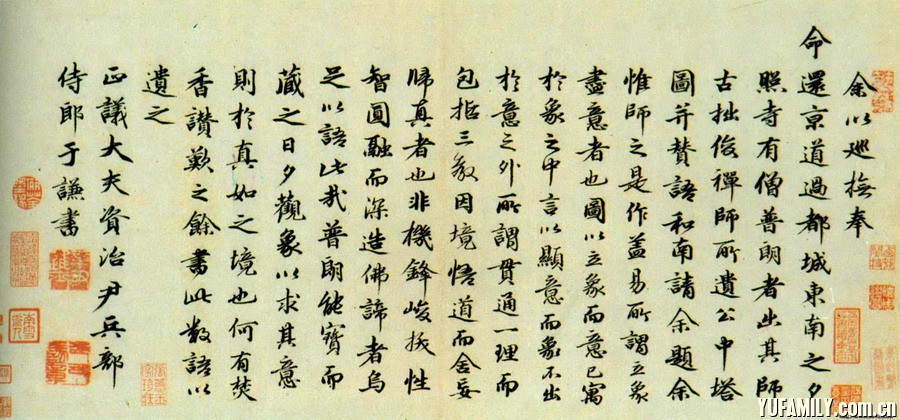 余以巡撫奉
命還京道過都城東南之夕
照寺有僧普朗者出其師
古拙俊禪師所遺公中塔
圖并贊語和南請余題余
惟師之是作蓋易所謂立象
盡意者也圖以立象而意已寓
於象之中言以顯意而象不出
於意之外所謂貫通一理而
包括三教因境悟道而舍妄
歸真者也非機鋒峻拔性
智圓融而深造佛諦者烏
足以語此哉普朗能寶而
藏之日夕觀象以求其意
則於真如之境也何有焚
香讚歎之餘書此數語以
遺之
正議大夫資治尹兵部
侍郎于謙書
YUFAMILY.com.cn